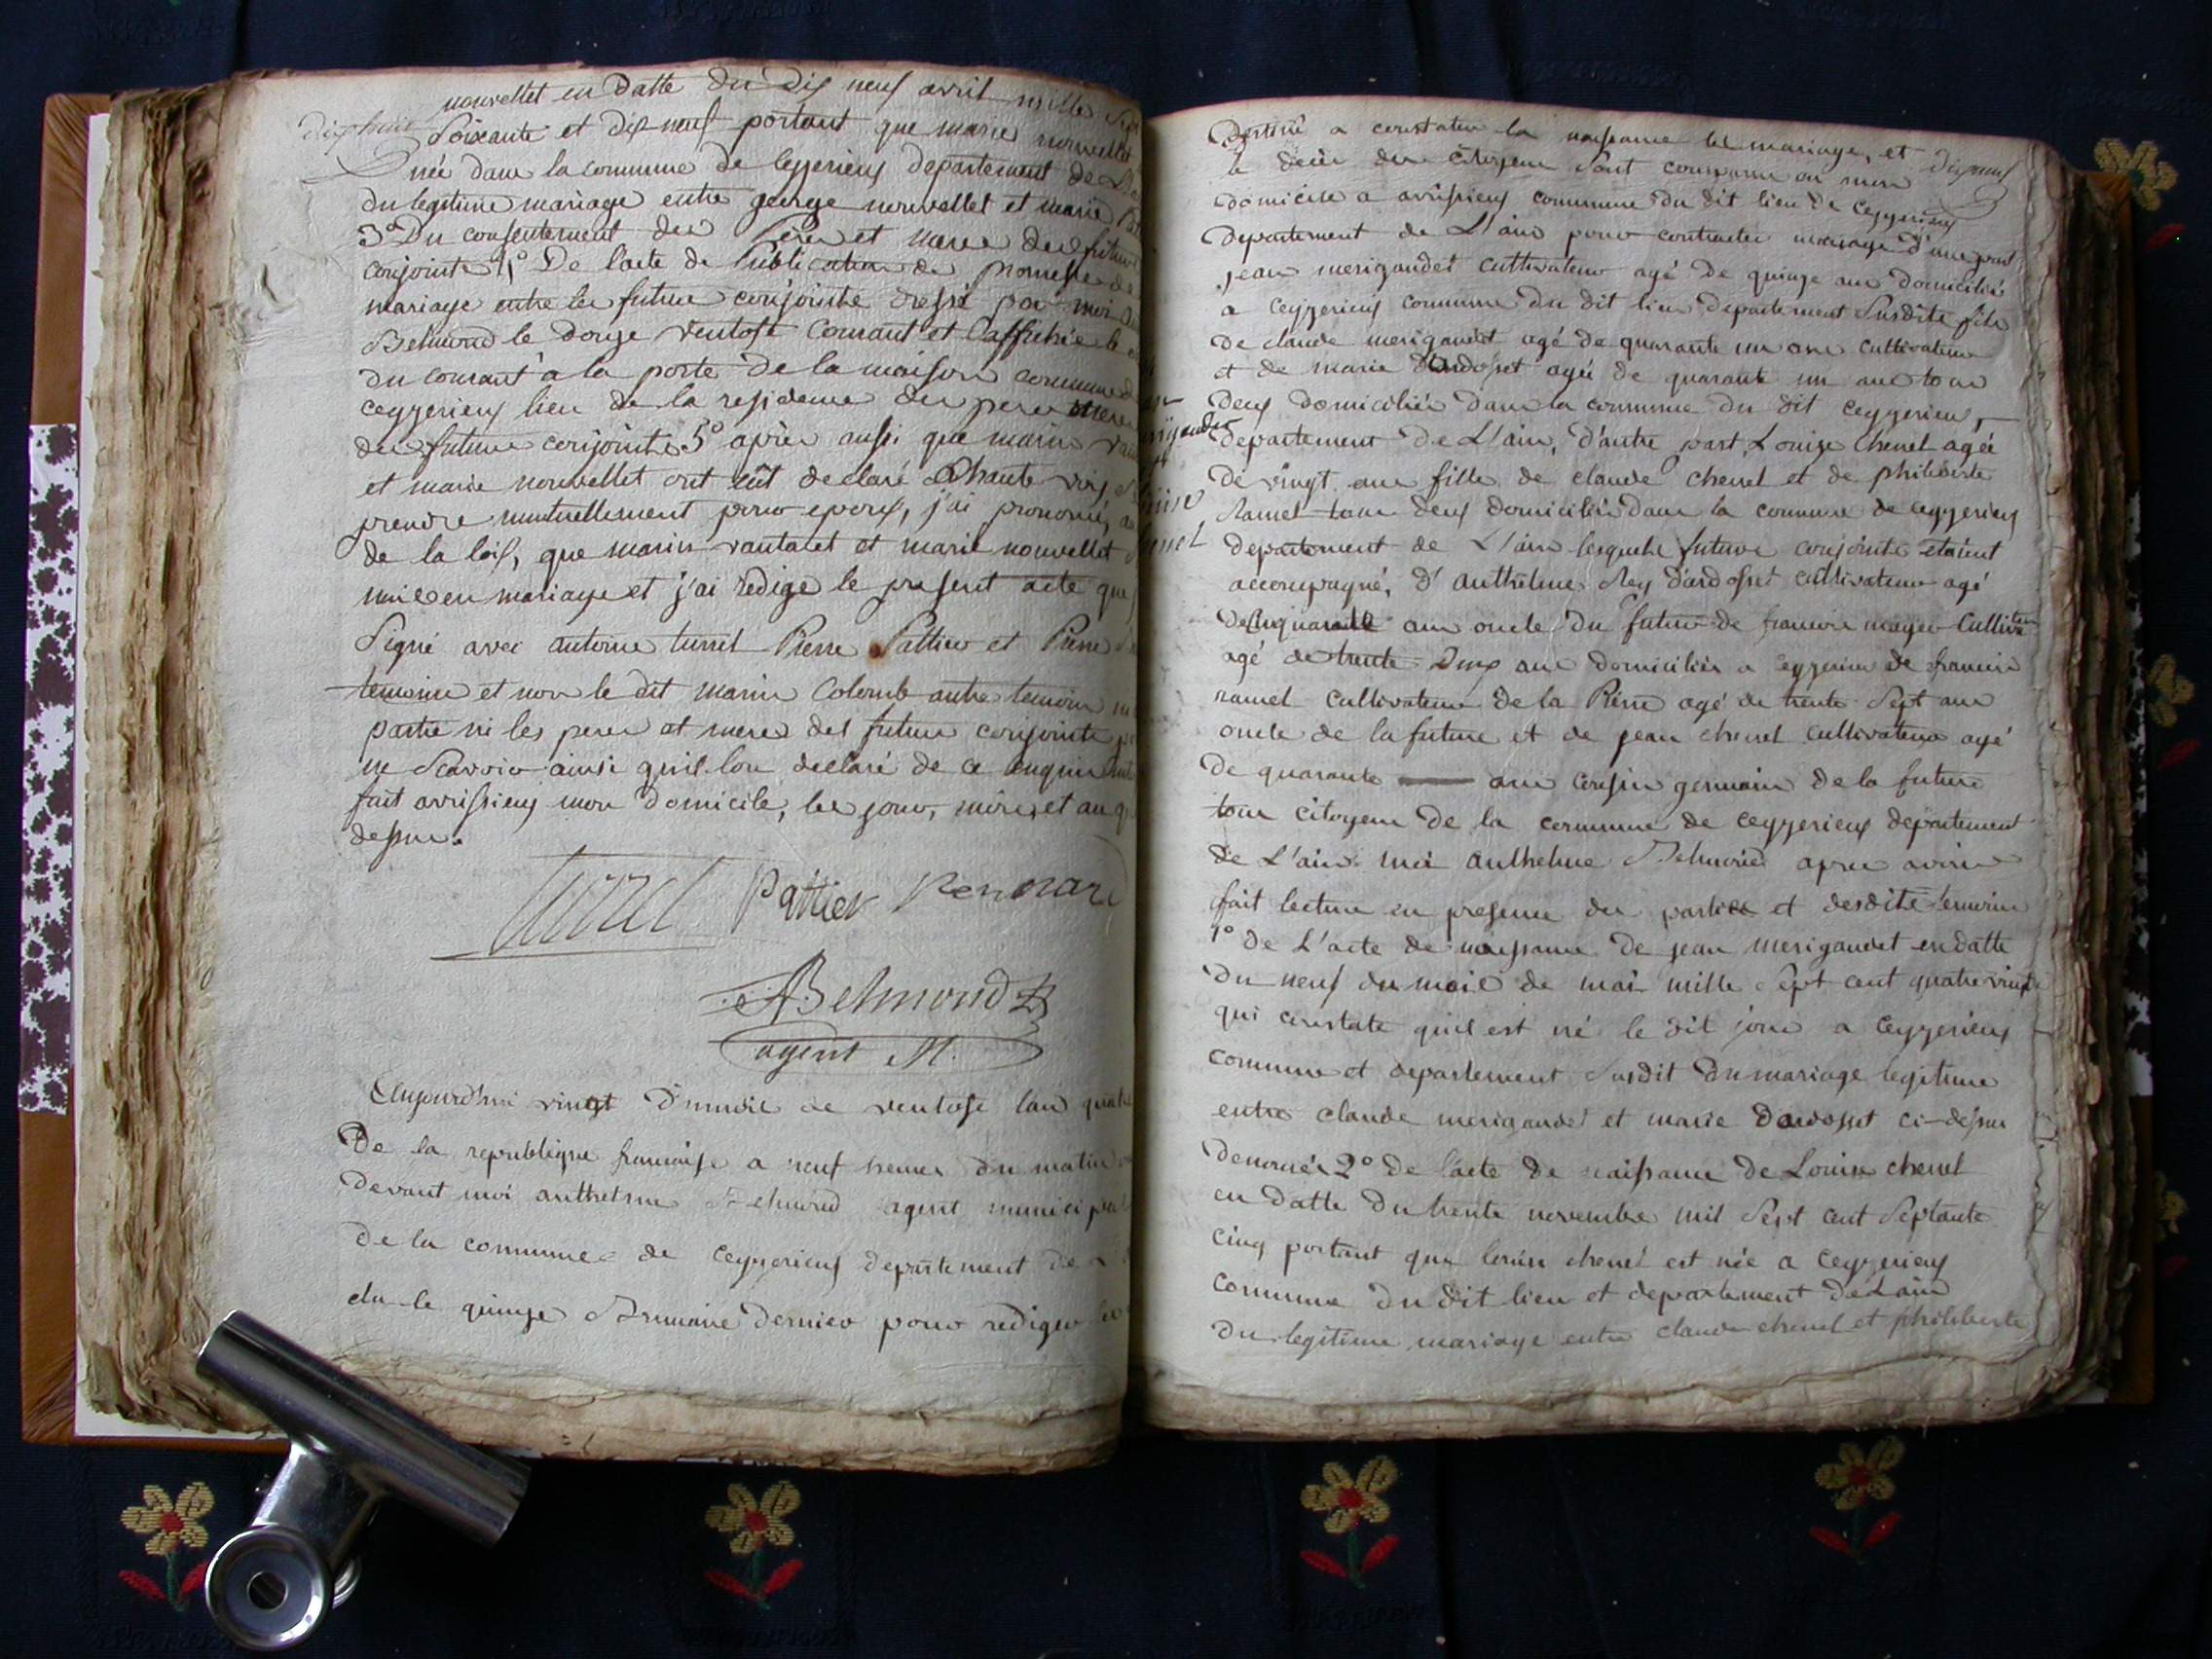 nouvellet en datte du dix neuf avril mille Sept
dix huit
Soixante et dix neuf portant que marie nouvellet
née dans la commune de Ceyzerieux departement de
du legitime mariage entre george nouvellet et marie
3° Du consentement des Peres et meres des futurs
conjoints 4° De l'acte de Publication de promesse de
mariage entre les futurs conjoints dressé par moi
Belmond le douze ventose Courant et l'affichée le
du courant a la porte de la maison commune de
ceyzerieux lieu de la residence des peres meres
des futurs conjoints 5° après aussi que marin
et marie nouvellet ont eut declaré a haute voix
prendre mutuellement pour epoux, j'ai prononcé, au
de la loix, que marin vautaret et marie nouvellet
unie en mariage et j'ai redigé le present acte que
Signé avec antoine turrel Pierre Pattier et Pierre
temoins et non le dit marin Colomb autre temoin
partie ni les peres et meres des futurs conjoints
ne Scavoir ainsi qu'il l'on declaré de ce enquis
fait avrissieux mon domicile, les jour, mois et an que
dessus.
turrel Pattier Renenar
ABelmond
agent M.
Aujourd'hui vingt du mois de ventose l'an quatre
De la republique française a neuf heures du matin
Devant moi anthelme Belmond agent municipal
De la commune de Ceyzerieux departement de
elu le quinze Brumaire dernier pour rediger les
Destiné a constater la naissance le mariage, et
dix neuf
le décès des Citoyens sont comparus en mon
domicile a avrissieux commune du dit lieu de Ceyzerieux
departement de L'ain pour contracter mariage d'une part
jean merigaudet cultivateur agé de quinze ans domicilié
a ceyzerieux commune du dit lieu departement Susdite fils
de claude merigaudet agé de quarante un ans cultivateur
et de marie Dardosset agée de quarante un ans tous
deux domiciliés dans la commune du dit Ceyzerieux,
departement de L'ain, d'autre part, Louise Chenel agée
de vingt ans fille de claude chenel et de philiberte
Ramel tous deux domiciliés dans la commune de ceyzerieux
departement de L'ain lesquels futurs conjoints etoient
accompagné, d'anthelme Rey dardosset cultivateur agé
de cinquante ans oncle du futur de francois mayer Cultivateur
agé de trente Deux ans domiciliés a ceyzerieux de francois
ramel cultivateur de la Pierre agé de trente Sept ans
oncle de la future et de jean chenel cultivateur agé
de quarante ans cousin germain de la future
tous Citoyens de la commune de ceyzerieux departement
de L'ain. moi anthelme Belmond apres avoir
fait lecture en presence des parties et desdits temoins
1° de L'acte de naissance de jean merigaudet en datte
du neuf du mois de mai mille Sept cent quatre vingt
qui constate qu'il est né le dit jour a Ceyzerieux
commune et departement susdit du mariage legitime
entre claude merigaudet et marie Dardosset ci-dessus
denommés 2° de l'acte de naissance de Louise chenel
en datte du trente novembre mil Sept cent Septante
cinq portant que louise chenel est née a Ceyzerieux
commune du dit lieu et departement de Lain
du legitime mariage entre claude chenel et philiberte